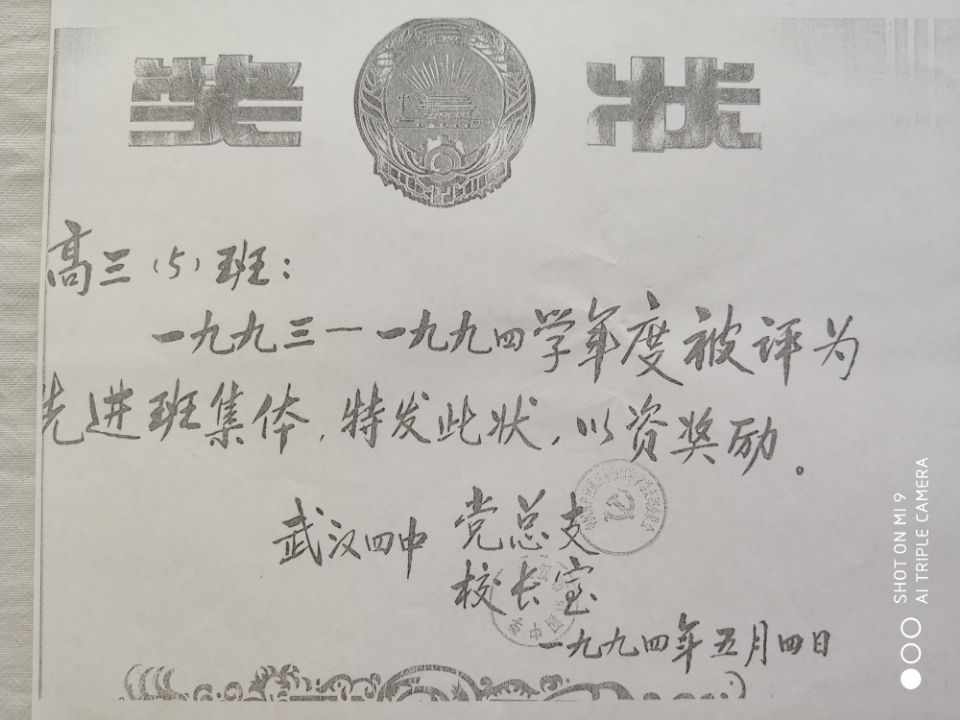 奖状
高三(5)班:
一九九三—一九九四学年度被评为
先进班集体,特发此状,以资奖励。
武汉四中 党总支
校长室
一九九四年五月四日
SHOT ON MI 9
AI TRIPLE CAMERA